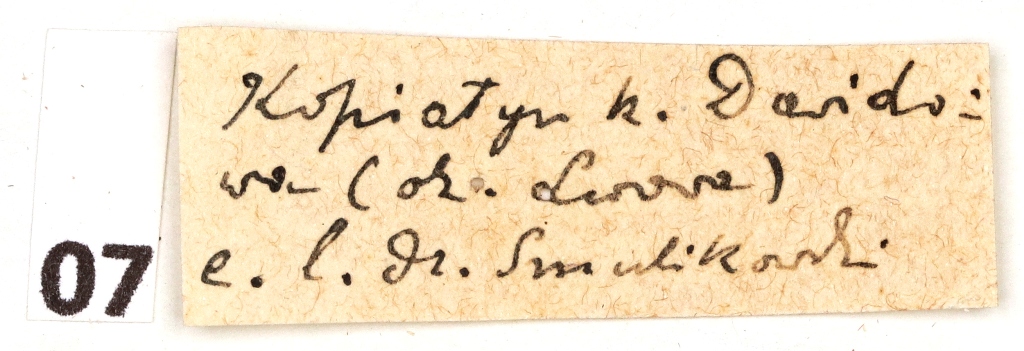 07
Kopiatyn k. Dawido-
wa (ok. Lwowa)
e. l. Dr. Smulikowski